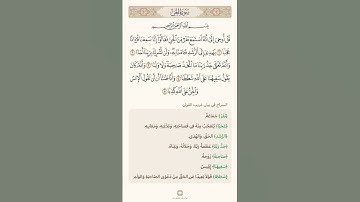 سُورَةُ الجِنِّ
بِسْمِ اللَّهِ الرَّحْمَٰنِ الرَّحِيمِ
قُلْ أُوحِيَ إِلَيَّ أَنَّهُ اسْتَمَعَ نَفَرٌ مِّنَ الْجِنِّ فَقَالُوا إِنَّا سَمِعْنَا قُرْآنًا
عَجَبًا ١ يَهْدِي إِلَى الرُّشْدِ فَآمَنَّا بِهِ وَلَن نُّشْرِكَ بِرَبِّنَا أَحَدًا ٢
وَأَنَّهُ تَعَالَىٰ جَدُّ رَبِّنَا مَا اتَّخَذَ صَاحِبَةً وَلَا وَلَدًا ٣ وَأَنَّهُ كَانَ
يَقُولُ سَفِيهُنَا عَلَى اللَّهِ شَطَطًا ٤ وَأَنَّا ظَنَنَّا أَن لَّن تَقُولَ الْإِنسُ
وَالْجِنُّ عَلَى اللَّهِ كَذِبًا ٥
السراج في بيان غريب القرآن
﴿نَفَرٌ﴾ جَمَاعَةٌ.
﴿عَجَبًا﴾ يُتَعَجَّبُ مِنْهُ فِي فَصَاحَتِهِ، وَبَلَاغَتِهِ، وَمَعَانِيهِ.
﴿الرُّشْدِ﴾ الحَقِّ، وَالهُدَى.
﴿جَدُّ رَبِّنَا﴾ عَظَمَةُ رَبِّنَا، وَجَلَالُهُ، وَغِنَاهُ.
﴿صَاحِبَةً﴾ زَوْجَةً.
﴿سَفِيهُنَا﴾ إِبْلِيسُ.
﴿شَطَطًا﴾ قَوْلًا بَعِيدًا عَنِ الحَقِّ مِنْ دَعْوَى الصَّاحِبَةِ وَالوَلَدِ.